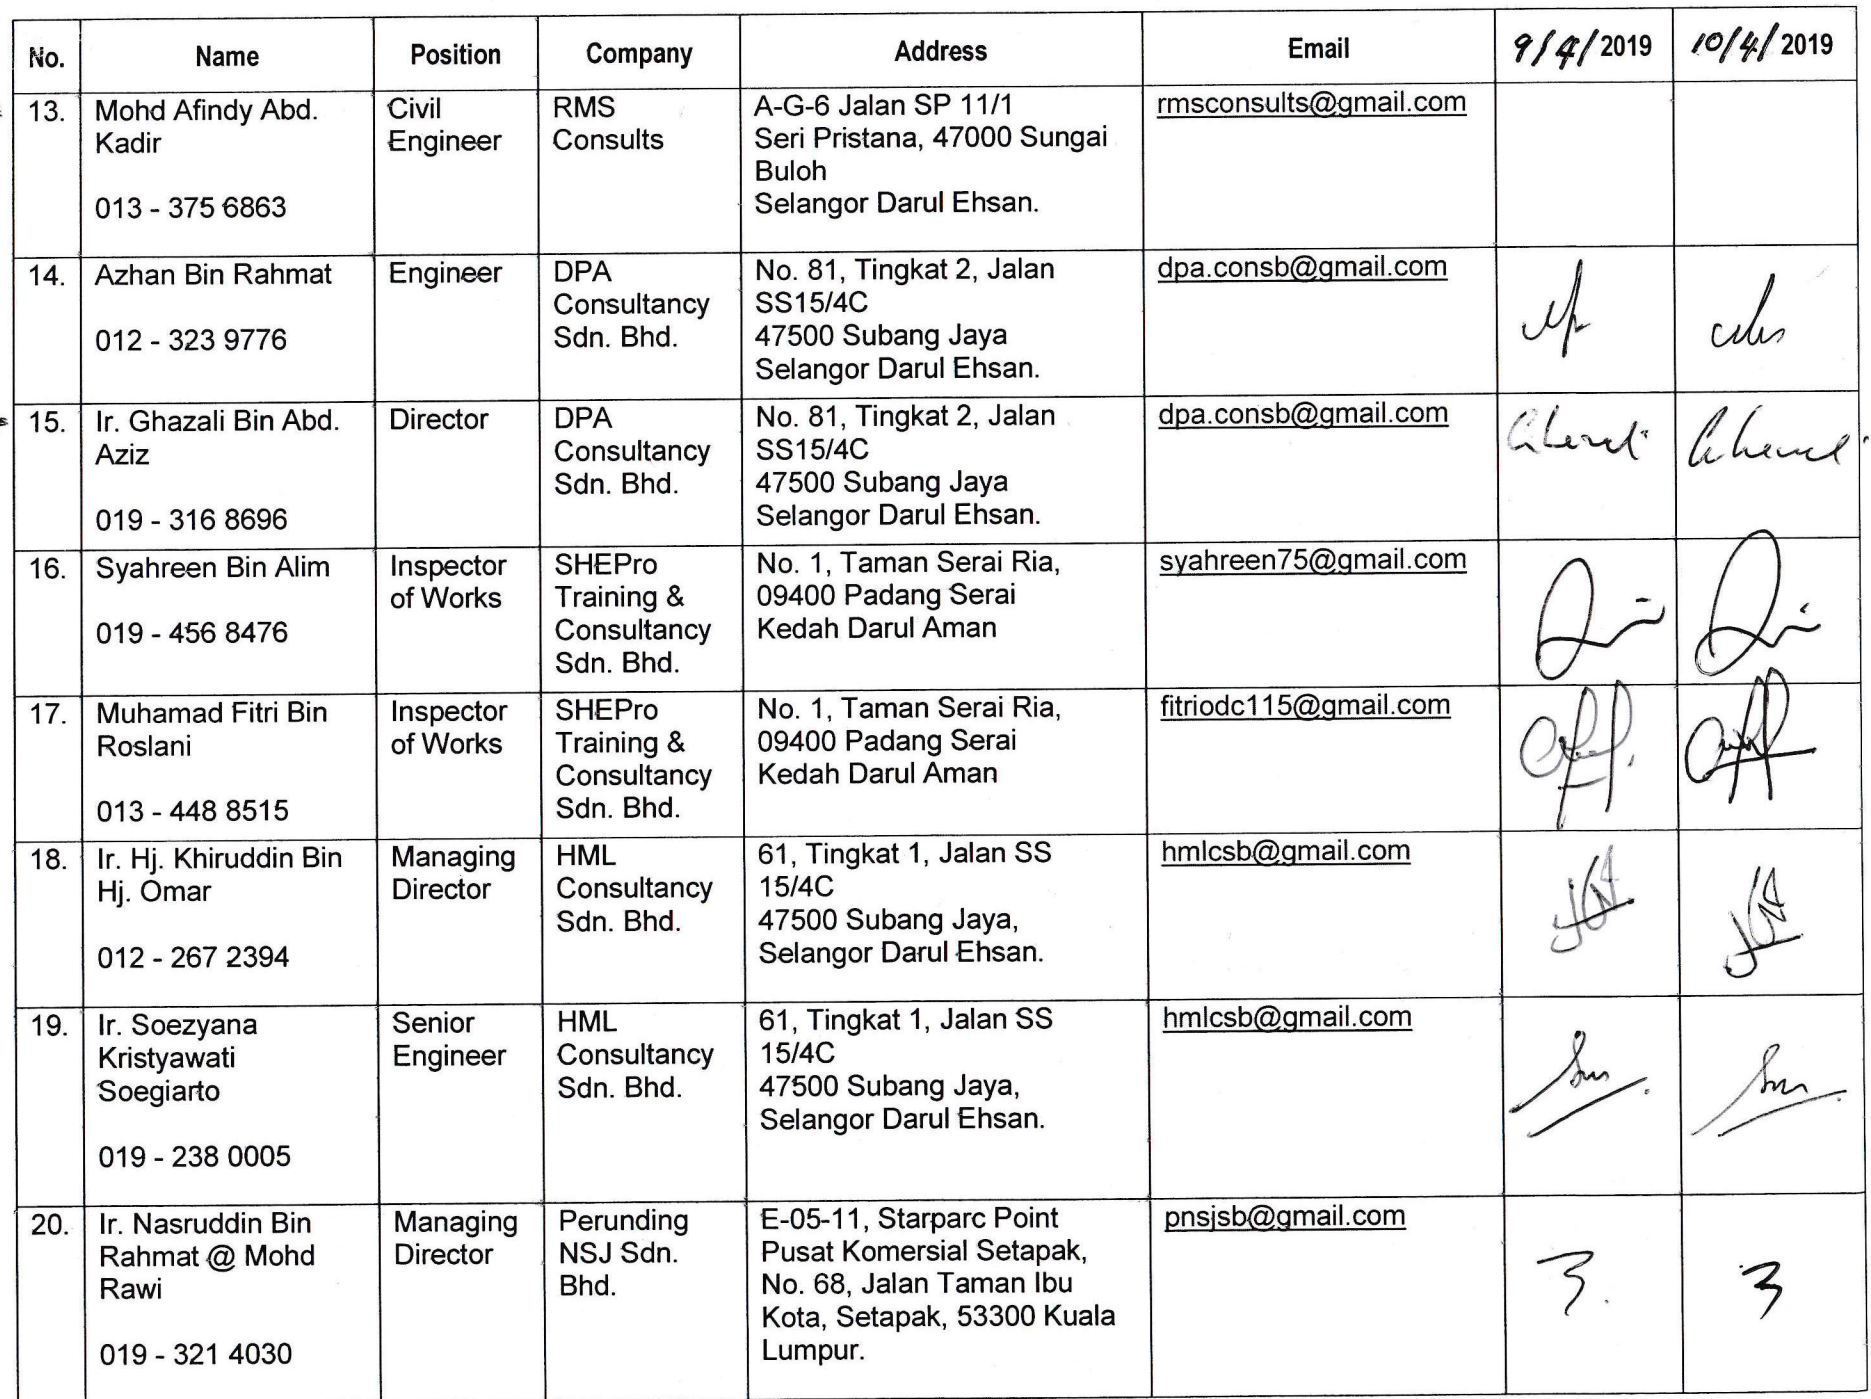 No. Name Position Company Address Email 9/4/2019 10/4/2019
13. Mohd Afindy Abd.
Kadir
013 - 375 6863
Civil
Engineer
RMS
Consults
A-G-6 Jalan SP 11/1
Seri Pristana, 47000 Sungai
Buloh
Selangor Darul Ehsan.
rmsconsults@gmail.com
14. Azhan Bin Rahmat
012 - 323 9776
Engineer
DPA
Consultancy
Sdn. Bhd.
No. 81, Tingkat 2, Jalan
SS15/4C
47500 Subang Jaya
Selangor Darul Ehsan.
dpa.consb@gmail.com
15. Ir. Ghazali Bin Abd.
Aziz
019 - 316 8696
Director
DPA
Consultancy
Sdn. Bhd.
No. 81, Tingkat 2, Jalan
SS15/4C
47500 Subang Jaya
Selangor Darul Ehsan.
dpa.consb@gmail.com
16. Syahreen Bin Alim
019 - 456 8476
Inspector
of Works
SHEPro
Training &
Consultancy
Sdn. Bhd.
No. 1, Taman Serai Ria,
09400 Padang Serai
Kedah Darul Aman
syahreen75@gmail.com
17. Muhamad Fitri Bin
Roslani
013 - 448 8515
Inspector
of Works
SHEPro
Training &
Consultancy
Sdn. Bhd.
No. 1, Taman Serai Ria,
09400 Padang Serai
Kedah Darul Aman
fitriodc115@gmail.com
18. Ir. Hj. Khiruddin Bin
Hj. Omar
012 - 267 2394
Managing
Director
HML
Consultancy
Sdn. Bhd.
61, Tingkat 1, Jalan SS
15/4C
47500 Subang Jaya,
Selangor Darul Ehsan.
hmlcsb@gmail.com
19. Ir. Soezyana
Kristyawati
Soegiarto
019 - 238 0005
Senior
Engineer
HML
Consultancy
Sdn. Bhd.
61, Tingkat 1, Jalan SS
15/4C
47500 Subang Jaya,
Selangor Darul Ehsan.
hmlcsb@gmail.com
20. Ir. Nasruddin Bin
Rahmat @ Mohd
Rawi
019 - 321 4030
Managing
Director
Perunding
NSJ Sdn.
Bhd.
E-05-11, Starparc Point
Pusat Komersial Setapak,
No. 68, Jalan Taman Ibu
Kota, Setapak, 53300 Kuala
Lumpur.
pnsjsb@gmail.com